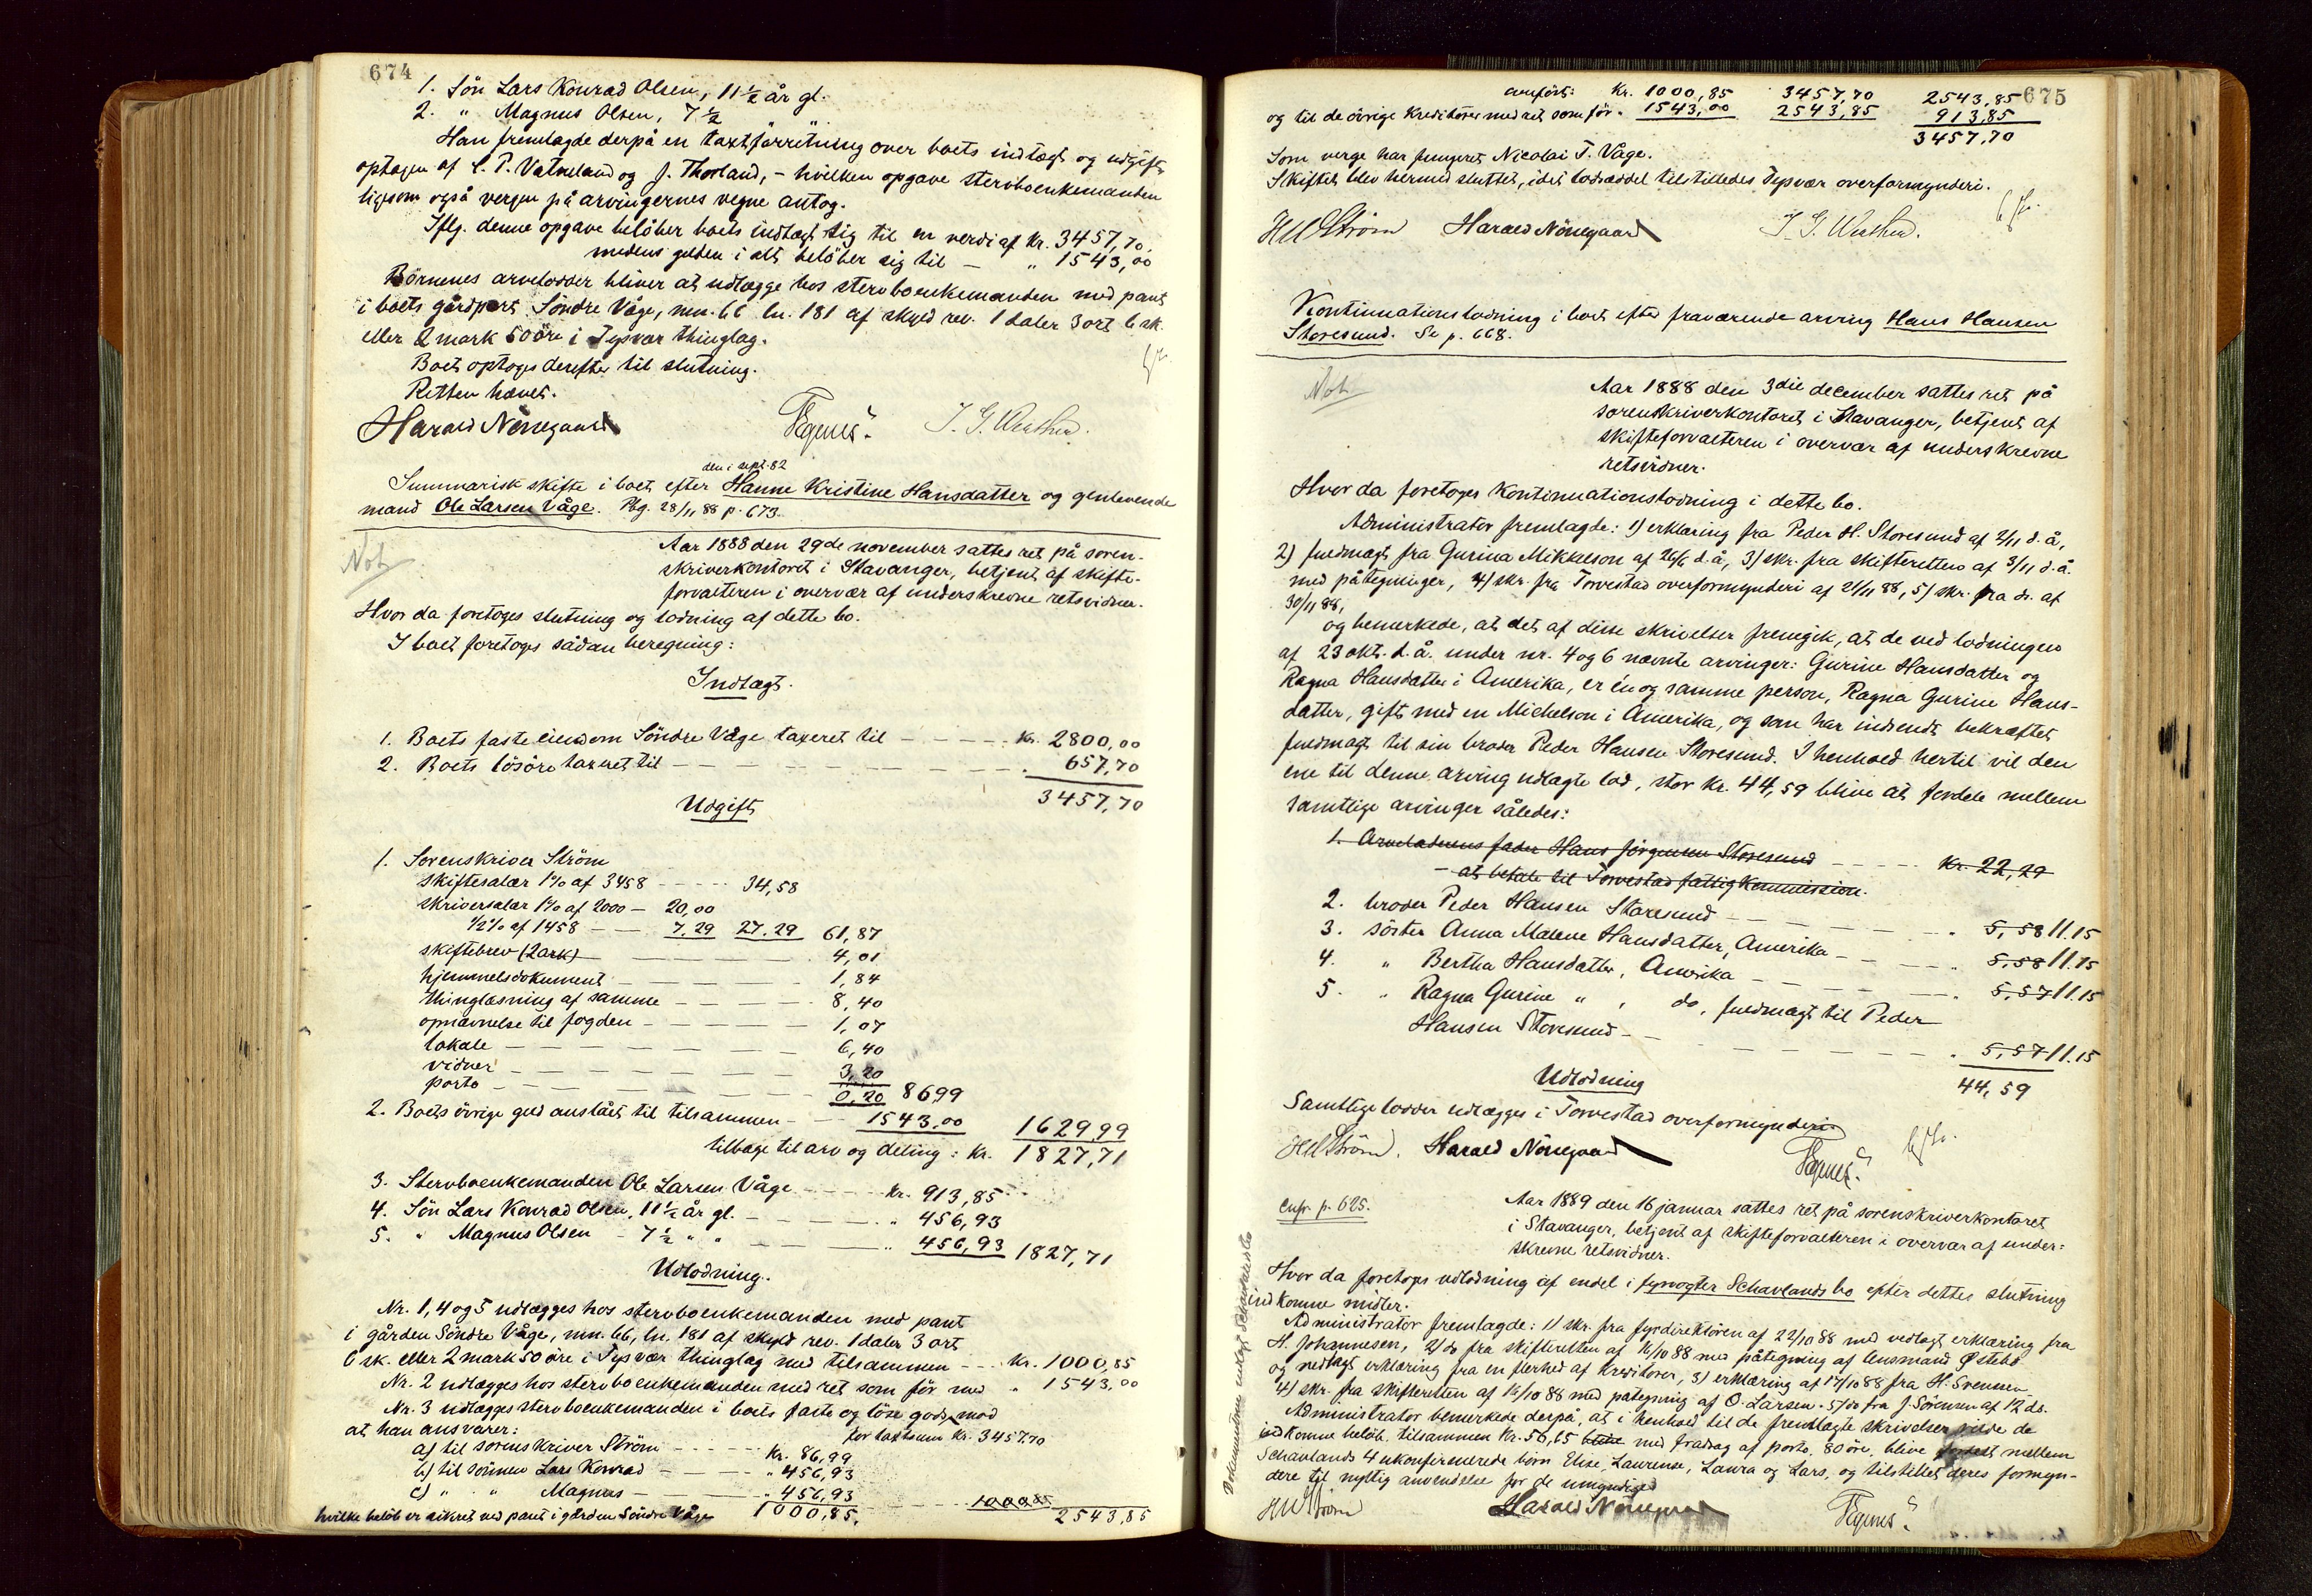 674
1. Sön Lars Konrad Olsen, 11 ½ år gl.
2. " Magnus Olsen, 7 ½
Han fremlagde derpå en taxtforretning over boets indtægt og udgift,
optagen af L. P. Vatneland og J. Thorland, - hvilken opgave stervboenkemanden
ligesom også vergen på arvingernes vegne antog.
Iflg. denne opgave belöber boets indtægt sig til en verdi af kr. 3457,70.
medens gjelden i alt belöber sig til — " 1543,00
Börnenes arvelodder bliver at udlægge hos stervboenkemanden med pant
i boets gårdpart Söndre Våge, mn. 66 ln. 181 af skyld rev. 1 daler 3 ort 6 sk.
eller 2 mark 50 öre i Tysvær thinglag.
Boet optoges derefter til slutning.
Retten hævet.
Harald Nönegaard Tegnes. T. G. Werthen.
den 1 sept. 82
Summarisk skifte i boet efter Hanne Kristine Hansdatter og gjenlevende
mand Ole Larsen Våge. Pbg. 28/11 88 p. 673.
Not.
Aar 1888 den 29de november sattes ret på soren-
skriverkontoret i Stavanger, betjent af skifte-
forvalteren i overvær af underskrevne retsvidner.
Hvor da foretoges slutning og lodning af dette bo.
I boet foretoges sådan beregning:
Indtægt.
1. Boets faste eiendom Söndre Våge taxeret til — — — — kr. 2800,00
2. Boets lösöre taxeret til — — — — — — — — — " 657,70
3457,70
Udgift
1. Sorenskriver Ström
skiftesalær 1% af 3458 — — — 34,58
skriversalær 1% af 2000 — 20,00
½% af 1458 — — 7,29 27.29 61,87
skiftebrev (2 ark) — — — — — 4,01
hjemmelsdokument — — — — 1,84
thinglæsning af samme — — — — 8,40
opnævnelse til fogden — — — — 1,07
lokale — — — — — — — 6,40
vidner — — — — — — — 3,20
porto — — — — — — — 0,20 86,99
2. Boets övrige gjeld anslået til tilsammen — — 1543,00 1629,99
tilbage til arv og deling: kr. 1827,71
3. Stervboenkemanden Ole Larsen Våge — — — kr. 913,85
4. Sön Lars Konrad Olsen, 11 ½ år gl. — — — — " 456,93
5. " Magnus Olsen — 7 ½ " " — — — — " 456,93 1827,71
Udlodning.
Nr. 1, 4 og 5 udlægges hos stervboenkemanden med pant
i gården Söndre Våge, mn. 66, ln. 181 af skyld rev. 1 daler 3 ort
6 sk. eller 2 mark 50 öre i Tysvær thinglag med tilsammen — — kr. 1000,85
Nr. 2 udlægges hos stervboenkemanden med ret som för med " 1543,00
Nr. 3 udlægges stervboenkemanden i boets faste og löse gods, mod
for taxtsum kr. 3457,70
at han ansvarer:
a) til sorenskriver Ström — — — — kr. 86,99
b) til sönnen Lars Konrad — — — " 456,93
c) " " Magnus — — — " 456,93
hvilke belöb er sikret ved pant i gården Söndre Våge 1000,85. 1000,85 2543,85
675
anfört: kr. 1000,85 3457,70 2543,85
og til de övrige kreditorer med ret som för " 1543,00 2543,85 913,85
3457,70
Som verge har fungeret Nicolai T. Våge.
Skiftet blev hermed sluttet, idet lodseddel tilstilledes Tysvær overformynderi.
HMStröm Harald Nönegaard T. G. Werthen.
Kontinuationslodning i boet efter fraværende arving Hans Hansen
Storesund. Se p. 668.
Not.
Aar 1888 den 3die december sattes ret på
sorenskriverkontoret i Stavanger, betjent af
skifteforvalteren i overvær af underskrevne
retsvidner.
Hvor da foretoges kontinuationslodning i dette bo.
Administrator fremlagde: 1) erklæring fra Peder H. Storesund af 2/11 d. å,
2) fuldmagt fra Gurina Mikkelson af 26/6 d. å, 3) skr. fra skifteretten af 3/11 d. å.
med påtegninger, 4) skr. fra Torvestad overformynderi af 21/11 88, 5) skr. fra do. af
30/11 88,
og bemerkede, at det af disse skrivelser fremgik, at de ved lodningen
af 23 okt. d. å. under nr. 4 og 6 nævnte arvinger: Gurine Hansdatter og
Ragna Hansdatter i Amerika, er én og samme person, Ragna Gurine Hans-
datter, gift med en Michelson i Amerika, og som har indsendt bekræftet
fuldmagt til sin broder Peder Hansen Storesund. I henhold hertil vil den
ene til denne arving udlagte lod, stor kr. 44,59 blive at fordele mellem
samtlige arvinger således:
1. Arveladerens fader Hans Jörgensen Storesund — — — kr. 22,29
— at betale til Torvestad fattigkommission.
2. broder Peder Hansen Storesund — — — — — — " 5,58 11.15
3. söster Anna Malene Hansdatter, Amerika — — — — " 5,58 11.15
4. " Bertha Hansdatter, Amerika — — — — — " 5,57 11.15
5. " Ragna Gurine " , do, fuldmagt til Peder
Hansen Storesund — — — — — — — — " 5,57 11.15
44,59
Udlodning
Samtlige lodder udlægges i Torvestad overformynderi
HMStröm. Harald Nönegaard Tegnes.
Cnfr. p. 625.
Aar 1889 den 16 januar sattes ret på sorenskriverkontoret
i Stavanger, betjent af skifteforvalteren i overvær af under-
skrevne retsvidner.
Hvor da foretoges udlodning af endel i fyrvogter Schavlands bo efter dettes slutning
indkomne midler.
Administrator fremlagde: 1) skr. fra fyrdirektören af 22/10 88 med vedlagt erklæring fra
H. Johannesen, 2) do fra skifteretten af 16/10 88 med påtegning af lensmand Östebö
og vedlagt erklæring fra en flerhed af kreditorer, 3) erklæring af 17/10 88 fra H. Svensen
4) skr. fra skifteretten af 16/10 88 med påtegning af O. Larsen. 5) do fra J. Sörensen af 12 ds.
Administrator bemerkede derpå, at i henhold til de fremlagte skrivelser vilde de
indkomne belöb, tilsammen kr. 56,65 blive med fradrag af porto, 80 öre, blive fordelt mellem
Schavlands 4 ukonfirmerede börn Elise, Laurense, Laura og Lars, og tilstillet deres formyn-
dere til nyttig anvendelse for de umyndige
HMStröm Harald Nönegaard Tegnes.
Dokumenterne indlagt Schavlands bo